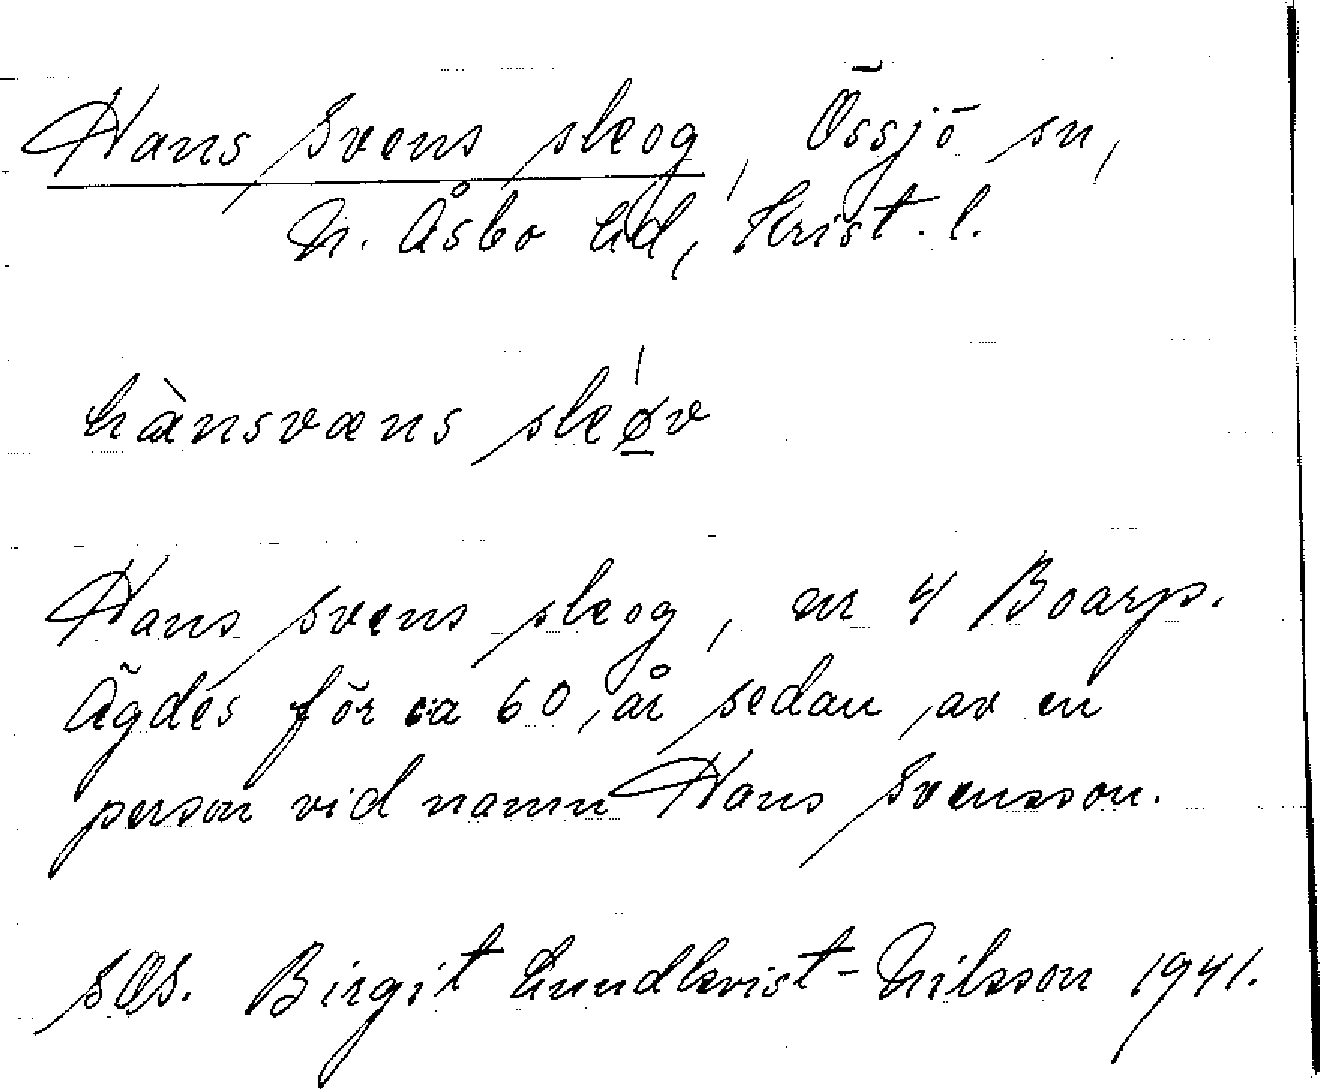 Hans Svens skog, Össjö sn,
N. Åsbo hd, Krist. l.
hànsvæns skøv
Hans Svens skog, nr 4 Boarp.
Ägdes för ca 60 år sedan av en
person vid namn Hans Svensson.
SOS. Birgit Lundkvist-Nilsson 1941.